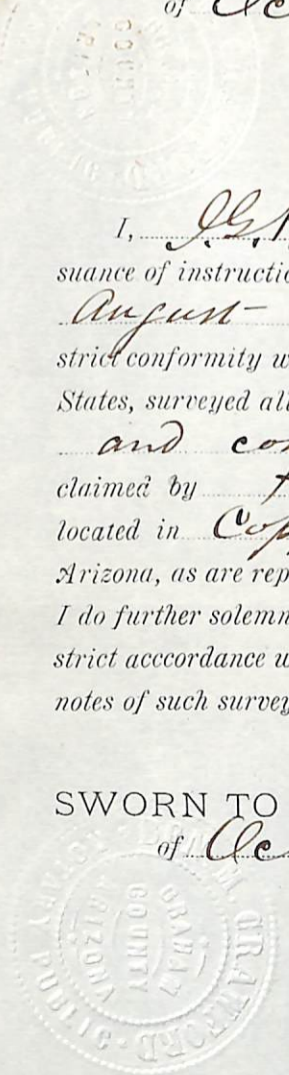 of Oc
COUNTY
I, J.G.
suance of instructio
August
strict conformity w
States, surveyed all
and co
claimed by
located in Cop
Arizona, as are rep
I do further solemn
strict acccordance w
notes of such survey
SWORN TO
of Oc
M. CRAWFORD
NOTARY PUBLIC
GRAHAM
COUNTY
ARIZONA